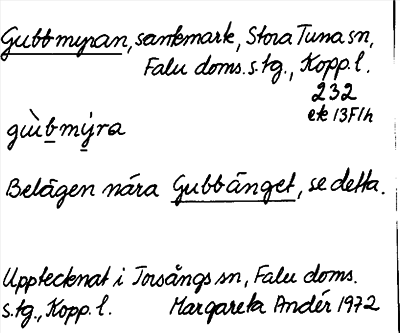 Gubbmyran, sankmark, Stora Tuna sn,
Falu doms. s. tg., Kopp. l.
232
ek 13F1h
gùbmýra
Belägen nära Gubbänget, se detta.
Upptecknat i Torsångs sn, Falu doms.
s. tg., Kopp. l. Margareta Andér 1972